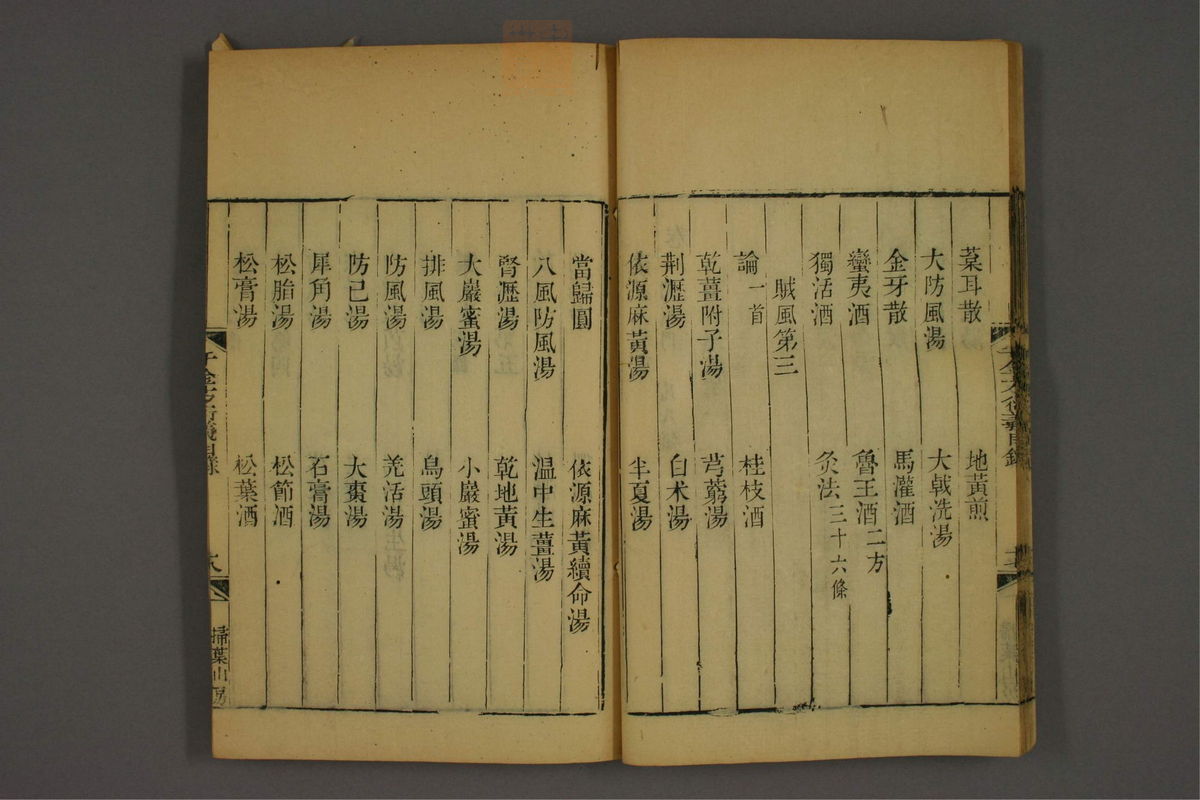 葈耳散　地黃煎
大防風湯　大戟洗湯
金牙散　馬灌酒
蠻夷酒　魯王酒二方
獨活酒　灸法三十六條
賊風第三
論一首　桂枝酒
乾薑附子湯　芎藭湯
荆瀝湯　白术湯
依源麻黃湯　半夏湯
當歸圓　依源麻黃續命湯
八風防風湯　温中生薑湯
腎瀝湯　乾地黃湯
大巖蜜湯　小巖蜜湯
排風湯　烏頭湯
防風湯　羌活湯
防已湯　大棗湯
犀角湯　石膏湯
松脂湯　松節酒
松膏湯　松葉酒
千金方衍義目錄
掃葉山房